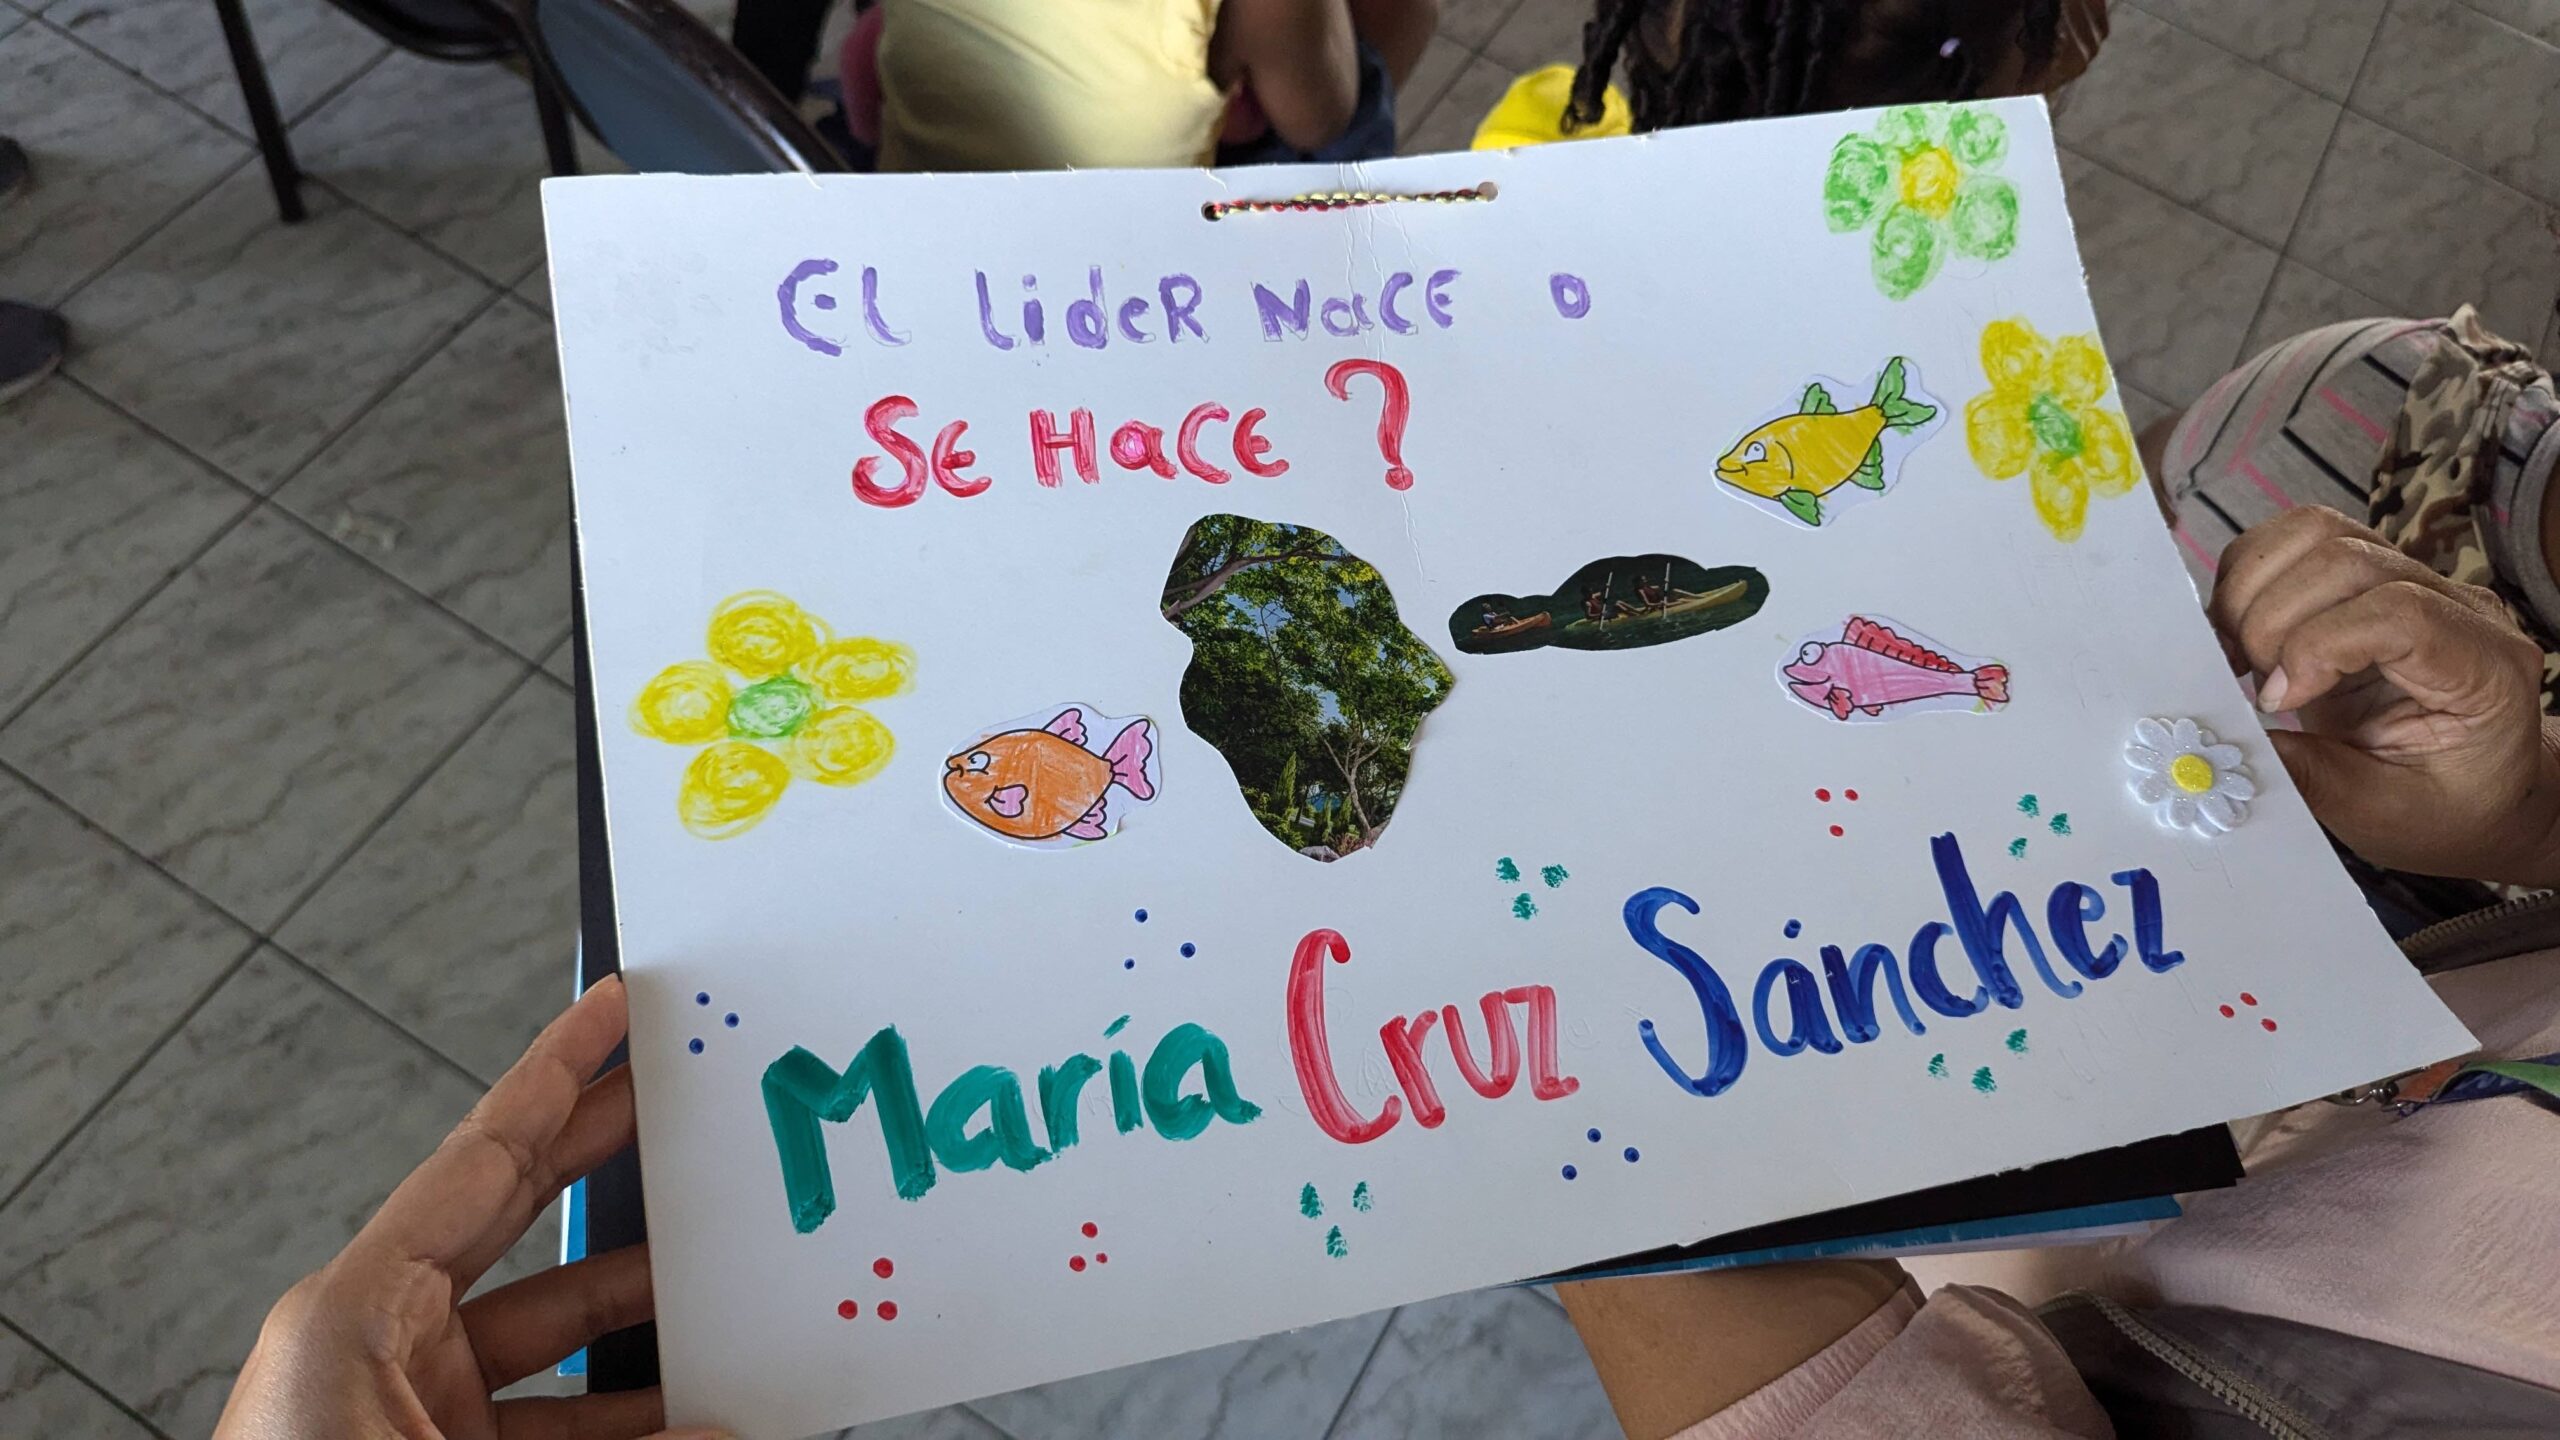 El lider Nace o
Se Hace ?
María Cruz Sánchez